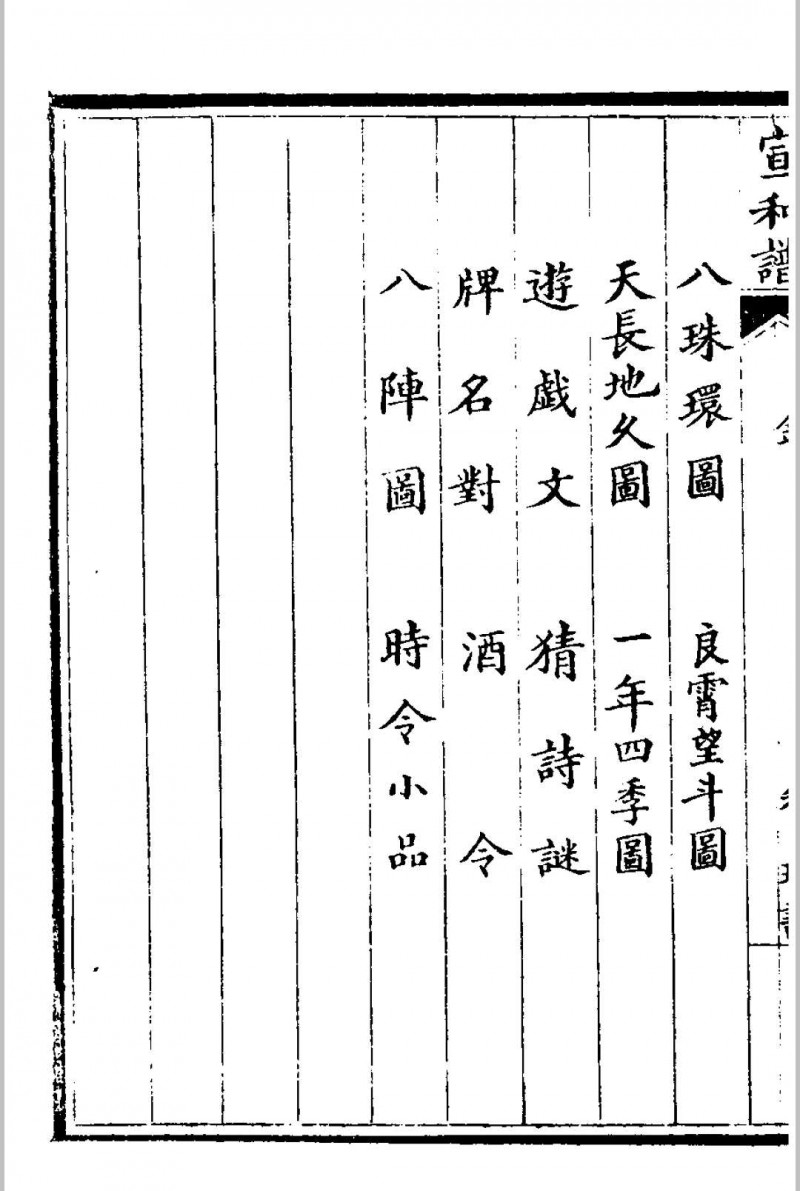 宣和譜
八珠環圖　良霄望斗圖
天長地久圖　一年四季圖
遊戲文　猜詩謎
牌名對　酒令
八陣圖　時令小品